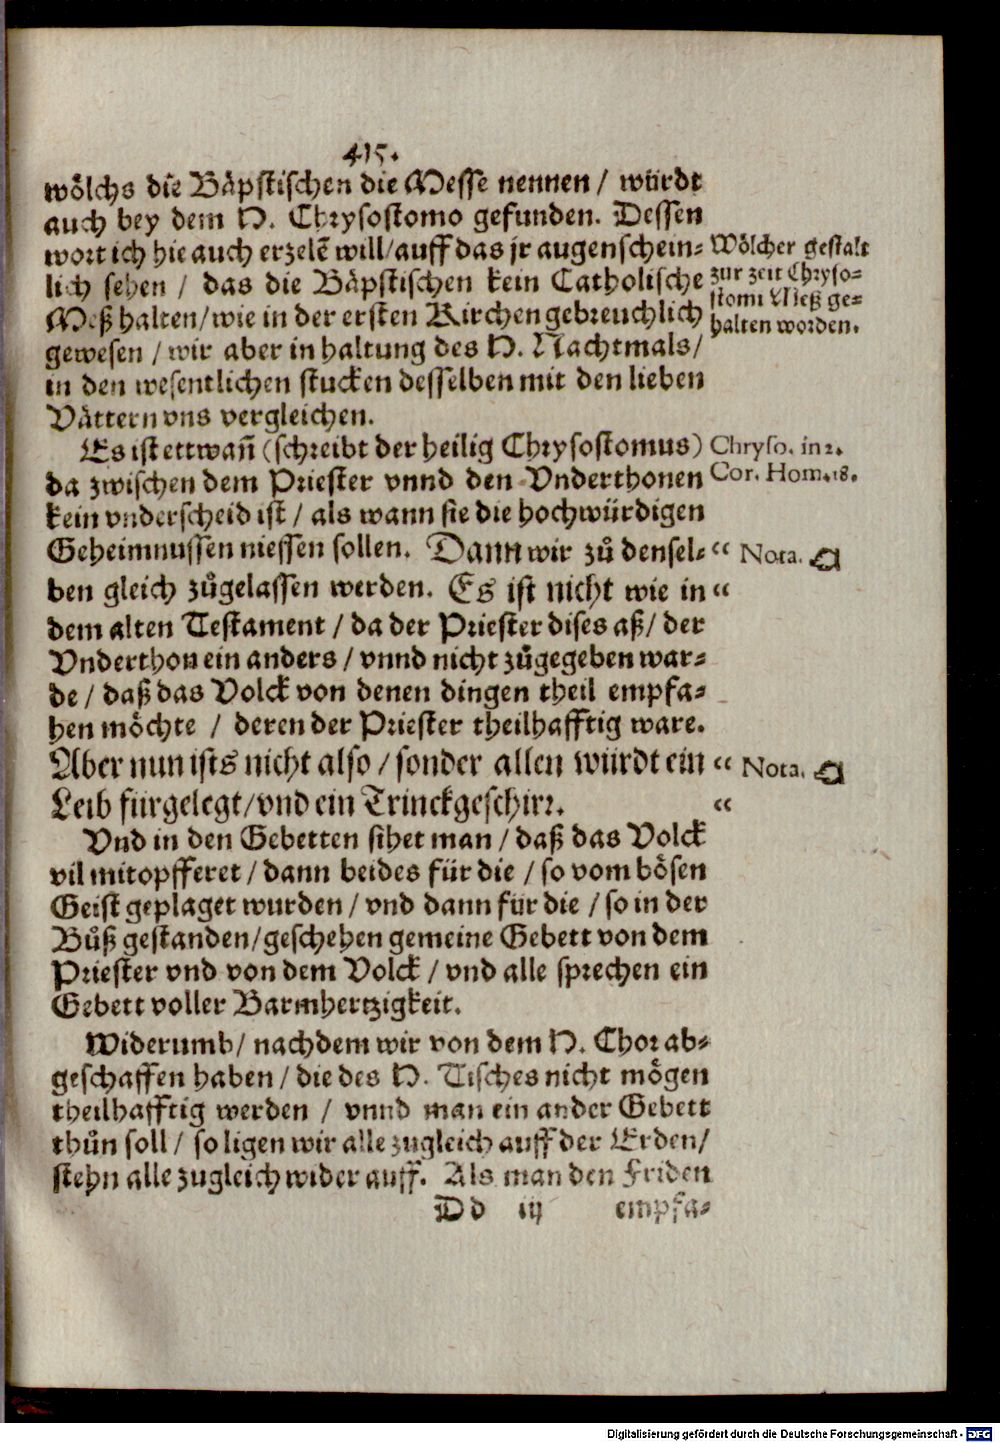 415.
wölchs die Bäpstischen die Messe nennen / würdt
auch bey dem H. Chrysostomo gefunden. Dessen
wort ich hie auch erzelē will / auff das jr augenschein-
lich sehen / das die Bäpstischen kein Catholische
Meß halten / wie in der ersten Kirchen gebreuchlich
gewesen / wir aber in haltung des H. Nachtmals /
in den wesentlichen stucken desselben mit den lieben
Vättern vns vergleichen.
Wölcher gestalt
zur zeit Chryso-
stomi Meß ge-
halten worden.
Es ist ettwañ (schreibt der heilig Chrysostomus)
da zwischen dem Priester vnnd den Vnderthonen
kein vnderscheid ist / als wann sie die hochwürdigen
Geheimnussen niessen sollen. Dann wir zů densel- “
ben gleich zůgelassen werden. Es ist nicht wie in “
dem alten Testament / da der Priester dises aß / der
Vnderthon ein anders / vnnd nicht zůgegeben war-
de / daß das Volck von denen dingen theil empfa-
hen möchte / deren der Priester theilhafftig ware.
Aber nun ists nicht also / sonder allen würdt ein “
Leib fürgelegt / vnd ein Trinckgeschirr. “
Chryso. in 1.
Cor. Hom. 18.
Nota. ☜
Nota. ☜
Vnd in den Gebetten sihet man / daß das Volck
vil mitopfferet / dann beides für die / so vom bösen
Geist geplaget wurden / vnd dann für die / so in der
Bůß gestanden / geschehen gemeine Gebett von dem
Priester vnd von dem Volck / vnd alle sprechen ein
Gebett voller Barmhertzigkeit.
Widerumb / nachdem wir von dem H. Chor ab-
geschaffen haben / die des H. Tisches nicht mögen
theilhafftig werden / vnnd man ein ander Gebett
thůn soll / so ligen wir alle zugleich auff der Erden /
stehn alle zugleich wider auff. Als man den Friden
Dd iij empfa-
Digitalisierung gefördert durch die Deutsche Forschungsgemeinschaft - DFG